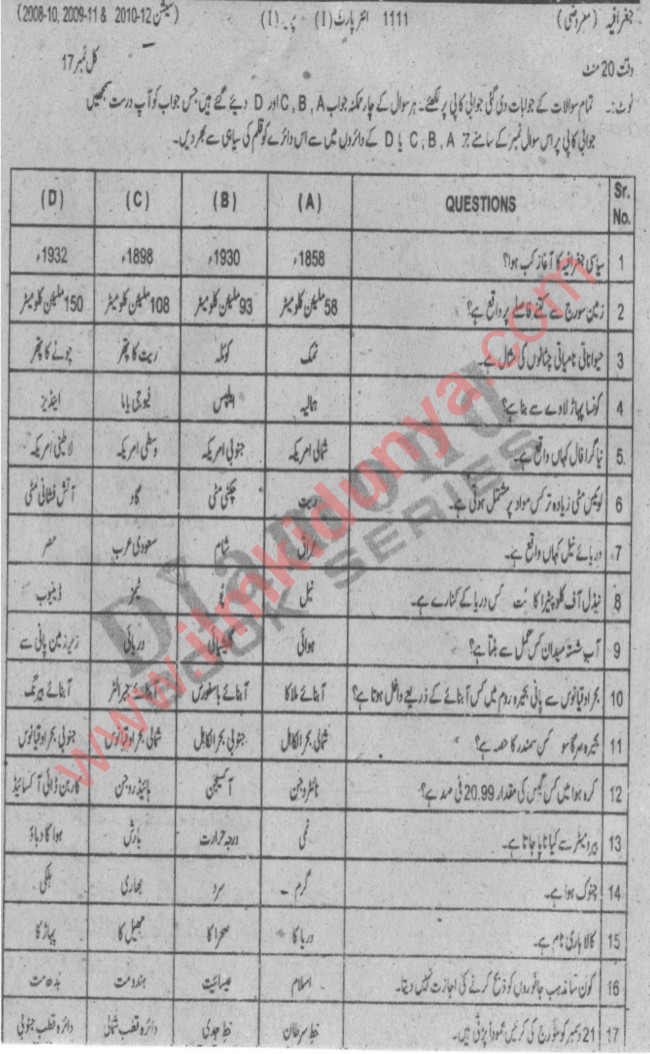 جغرافیہ (معروضی) 1111 انٹر پارٹ (I) پرچہ (I) (سیشن 2010-12 & 2009-11 ,2008-10)
وقت 20 منٹ کل نمبر 17
نوٹ:۔ تمام سوالات کے جوابات دی گئی جوابی کاپی پر لکھئے۔ ہر سوال کے چار ممکنہ جواب A ,B ,C اور D دیئے گئے ہیں جس جواب کو آپ درست سمجھیں
جوابی کاپی پر اس سوال نمبر کے سامنے A ,B ,C یا D کے دائروں میں سے اس دائرے کو قلم کی سیاہی سے بھر دیں۔
Sr. No. QUESTIONS (A) (B) (C) (D)
1 سیاسی جغرافیہ کا آغاز کب ہوا؟ 1858ء 1930ء 1898ء 1932ء
2 زمین سورج سے کتنے فاصلے پر واقع ہے؟ 58 ملین کلومیٹر 93 ملین کلومیٹر 108 ملین کلومیٹر 150 ملین کلومیٹر
3 حیواناتی نامیاتی چٹانوں کی مثال ہے۔ نمک کوئلہ ریت کا پتھر چونے کا پتھر
4 کونسا پہاڑ لاوے سے بنا ہے؟ ہمالیہ ایلپس فیوجی یاما اینڈیز
5 نیاگرا فال کہاں واقع ہے۔ شمالی امریکہ جنوبی امریکہ وسطی امریکہ لاطینی امریکہ
6 لوئیس مٹی زیادہ تر کس مواد پر مشتمل ہوتی ہے۔ ریت چکنی مٹی گاد آتش فشانی مٹی
7 دریائے نیل کہاں واقع ہے۔ شام سعودی عرب مصر
8 نیڈل آف کلوپیٹرا کا بُت کس دریا کے کنارے ہے۔ نیل پو ٹیمز ڈینیوب
9 آب شستہ میدان کس عمل سے بنتا ہے؟ ہوائی گلیشیائی دریائی زیر زمین پانی سے
10 بحر اوقیانوس سے پانی بحیرہ روم میں کس آبنائے کے ذریعے داخل ہوتا ہے؟ آبنائے ملاکا آبنائے باسفورس آبنائے جبرالٹر آبنائے بیرنگ
11 بحیرہ سارگاسو کس سمندر کا حصہ ہے؟ شمالی بحرالکاہل جنوبی بحرالکاہل شمالی بحر اوقیانوس جنوبی بحر اوقیانوس
12 کرہ ہوا میں کس گیس کی مقدار 20.99 فی صد ہے؟ نائٹروجن آکسیجن ہائیڈروجن کاربن ڈائی آکسائیڈ
13 بیرومیٹر سے کیا ناپا جاتا ہے۔ نمی درجہ حرارت بارش ہوا کا دباؤ
14 چنوک ہوا ہے۔ گرم سرد بھاری ہلکی
15 کالاہاری نام ہے۔ دریا کا صحرا کا جھیل کا پہاڑ کا
16 کون سا مذہب جانوروں کو ذبح کرنے کی اجازت نہیں دیتا۔ اسلام عیسائیت ہندومت بدھ مت
17 21 دسمبر کو سورج کی کرنیں عموداً پڑتی ہیں۔ خط سرطان خط جدی دائرہ قطب شمالی دائرہ قطب جنوبی
www.ilmkidunya.com
Diamond
BOOK SERIES